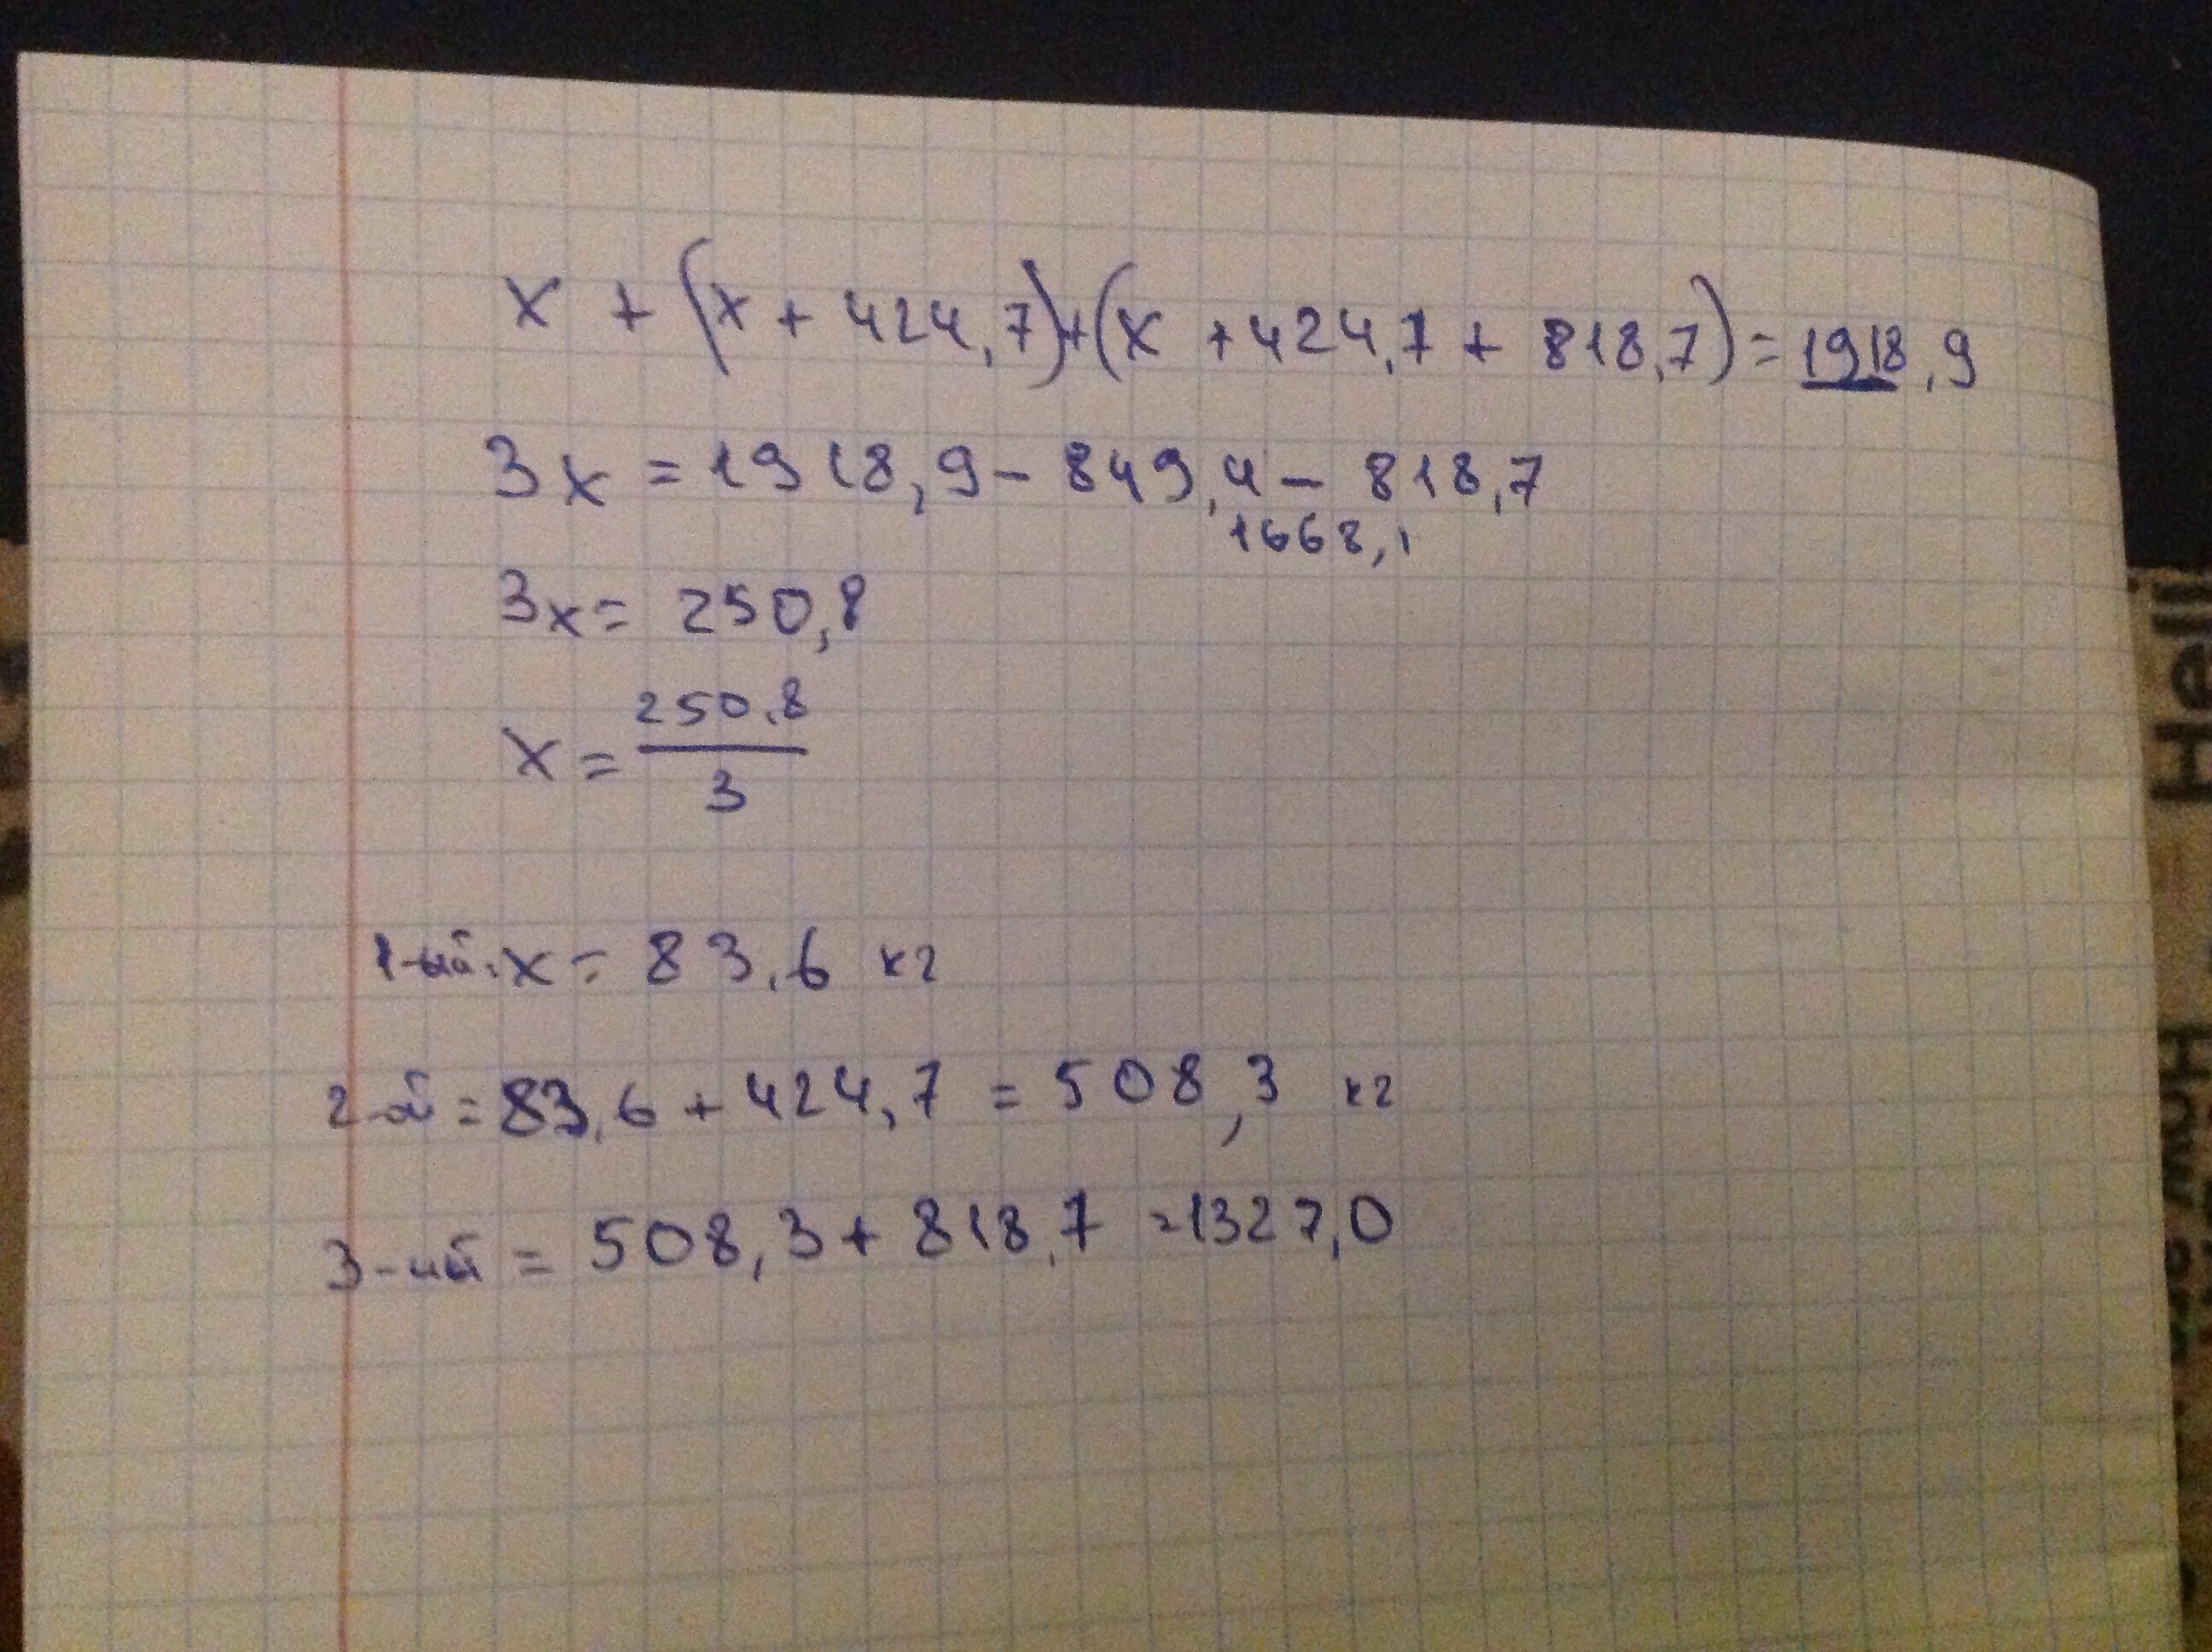 x + (x + 424,7)+(x +424,7 + 818,7)=1918,9
3x = 1918,9 - 849,4 - 818,7
1668,1
3x = 250,8
x = 250,8/3
1-ый: x = 83,6 кг
2-ой = 83,6 + 424,7 = 508,3 кг
3-ий = 508,3 + 818,7 = 1327,0
Hell